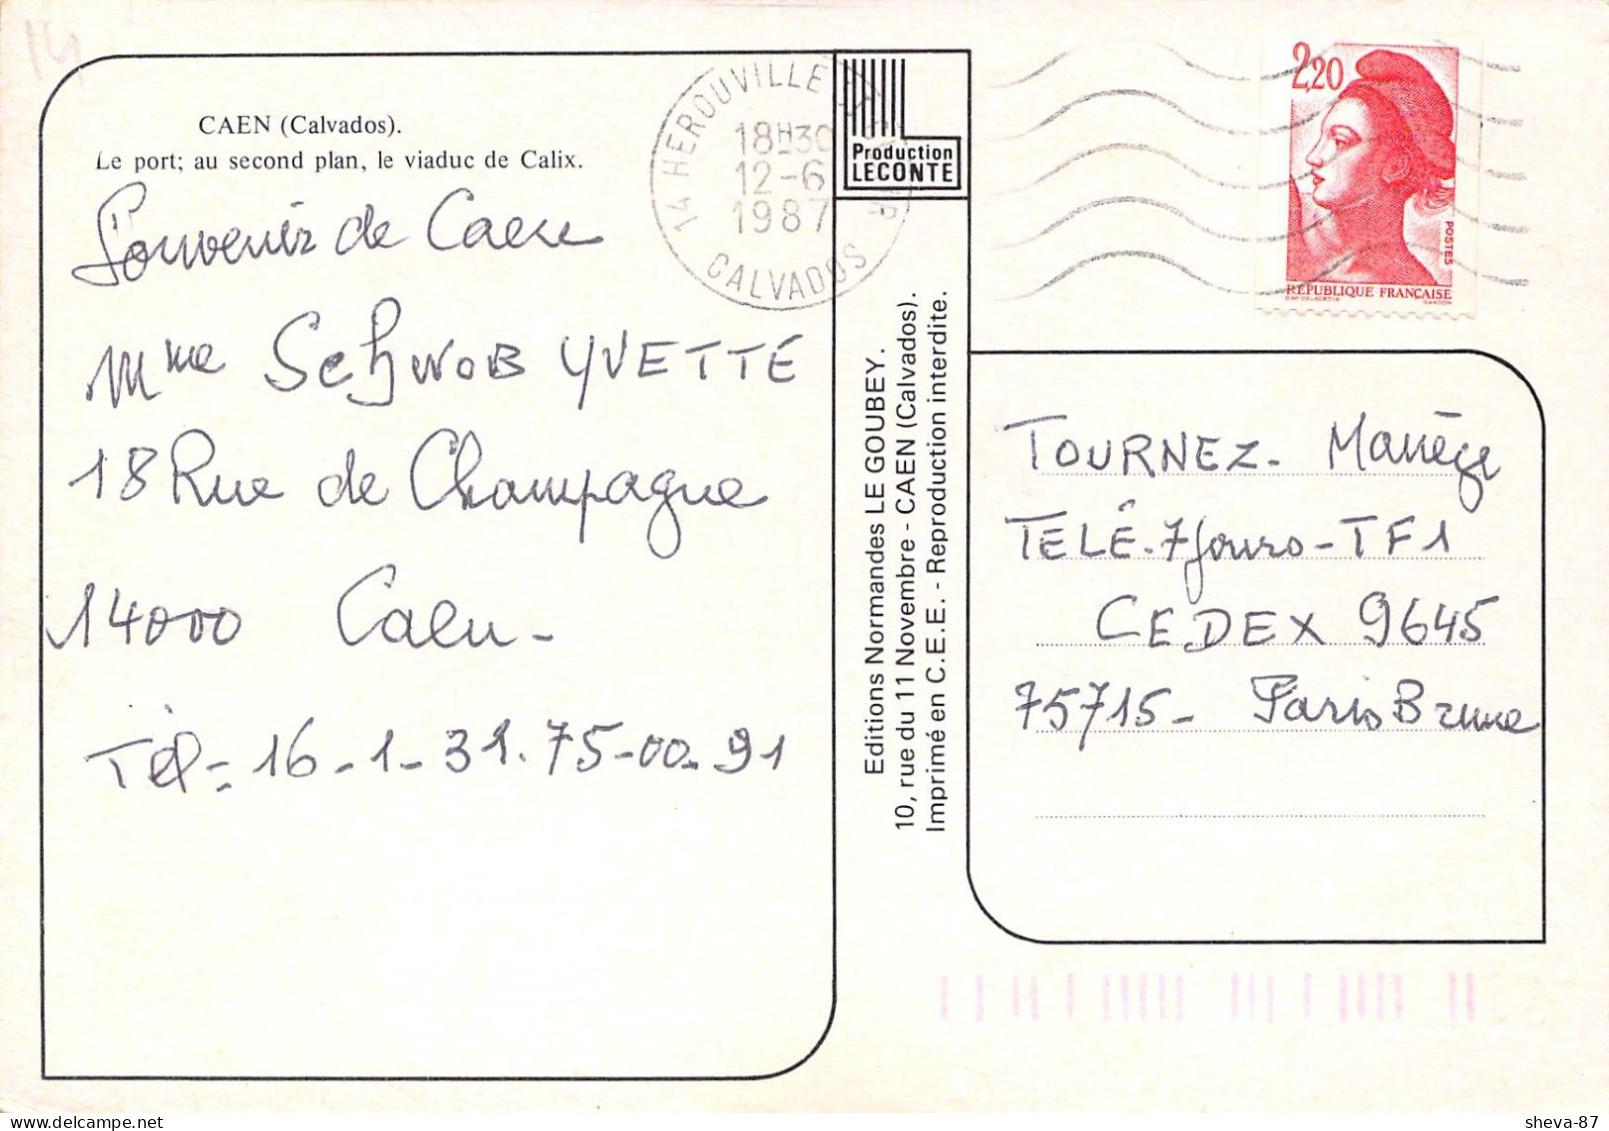 14
CAEN (Calvados).
Le port; au second plan, le viaduc de Calix.
Souvenir de Caen
Mme SCHWOB YVETTE
18 Rue de Champagne
14000 Caen -
Tél = 16 - 1 - 31.75-00-91
14 HEROUVILLE ST CLAIR
18H30
12-6
1987
CALVADOS
Production
LECONTE
Editions Normandes LE GOUBEY.
10, rue du 11 Novembre - CAEN (Calvados).
Imprimé en C.E.E. - Reproduction interdite.
2,20
POSTES
RÉPUBLIQUE FRANÇAISE
D'AP. DELACROIX GANDON
TOURNEZ - Manège
TELÉ-7 Jours - TF1
CEDEX 9645
75715 - Paris Brune
sheva-87